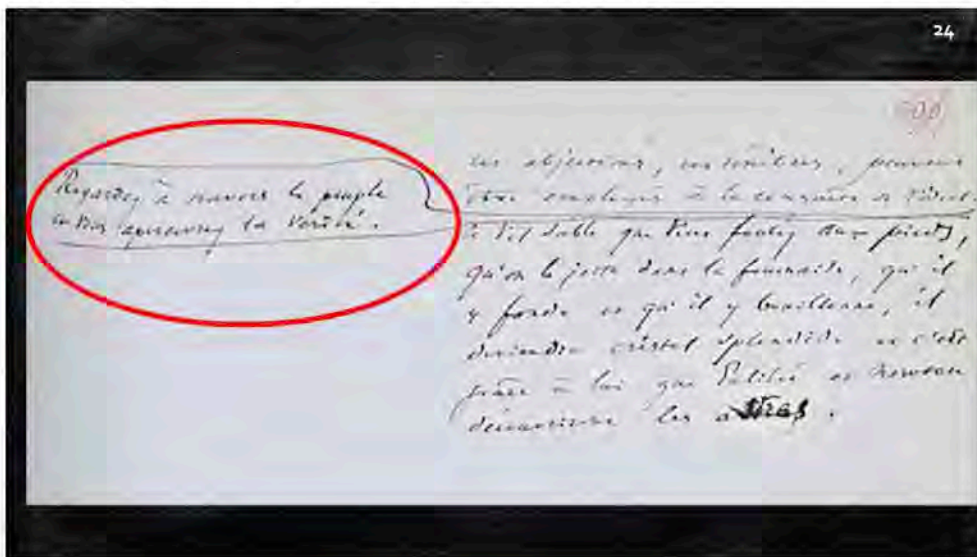 24
Regardez à travers le peuple
et vous apercevrez la vérité.
ces abjections, ces ténèbres, peuvent
être employés à la conquête de l'idéal
ce vil sable que vous foulez aux pieds,
qu'on le jette dans la fournaise, qu'il
y fonde et qu'il y bouillonne, il
deviendra cristal splendide et c'est
grâce à lui que Galilée et Newton
découvriront les astres.